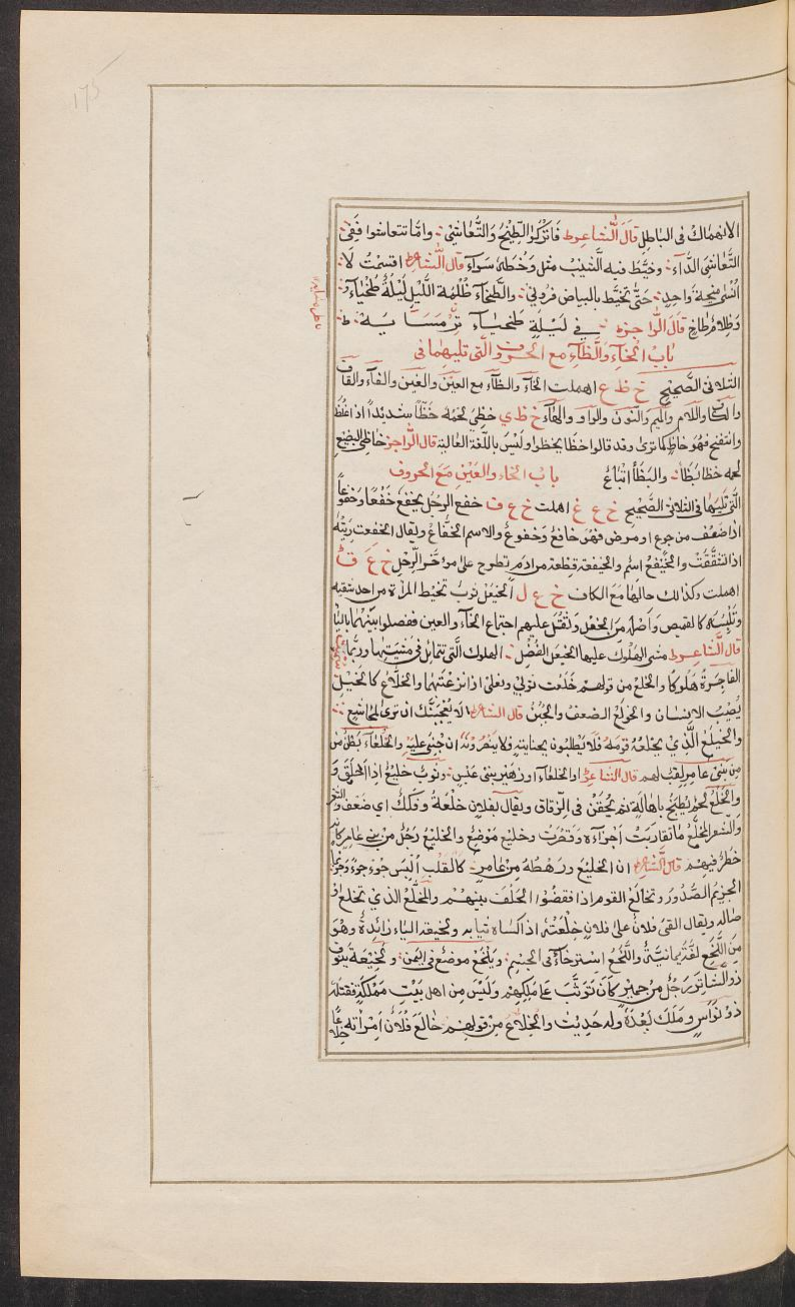 175
الانهماك فى الباطل قال الشاعر ط فاتركوا الطيخ والتعاشى وامّا تتعاشوا ففى
التعاشى الدآء وخيّط فيه الشيب مثل وخطه سوآء قال الشاعر ط اقسمت لا
انسى منيحة واحد حتى تخيّط بالبياض قرونى والطخيآء ظلمة الليل ليلة طخيآء
وظلام طاخ قال الراجز ه فى ليلة طخيآء ترمسا يه ط
باب الخآء والظآء مع الحروف التى تليهما فى
الثلاثى الصحيح خ ظ ع اهملت الخآء والظآء مع العين والغين والفآء والقاف
والكاف واللام والميم والنون والواو والهآء خ ظ ي خظى لحمه خظًا شديداً اذا غلظ
وانتفخ فهو خاظٍ كما ترى وقد قالوا خظا يخظوا وليس باللغة العالية قال الراجز خاظى البضيع
لحمه خظا بظا والبظا اتباع باب الخاء والعين مع الحروف
التى تليهما فى الثلاثى الصحيح خ ع غ اهملت خ ع ف خفع الرجل يخفع خفعًا وخفوعًا
اذا ضعف من جوع او مرض فهو خافع وخفوع والاسم الخفاع ويقال انخفعت ريته
اذا تشققت والخيفع اسم والخيفعة قطعة من ادم تطرح على مؤخر الرحل خ ع ق
اهملت وكذلك حالهما مع الكاف خ ع ل الخيعل ثوب تخيط المراة من احد شقيه
وتلبسه كالقميص واصله من الخعل وثقل عليهم اجتماع الخآء والعين ففصلوا بينهما باليا
قال الشاعر ط مشى الهلوك عليها الخيعل الفضل الهلوك التى تتمايل فى مشيتها وربما سميت
الفاجرة هلوكا والخلع من قولهم خلعت ثوبى ونعلى اذا نزعتهما والخلاع كالخبل
يصيب الانسان والخولع الضعف والجبن قال الشاعر لا يعجبنك ان ترى لمجاشع
والخليع الذي يخلعه قومه فلا يطلبون بجنايته ولا ينصرونه ان جنى عليه والخلعآء بطن من
من بنى عامر لقب لهم قال الشاعر او الخلعآء او زهير بنى عبس وثوب خليع اذا اخلق و
والخلع لحم يطبخ باهالة ثم يحقن فى الزقاق ويقال بفلان خلعة وفكك اي ضعف
والشعر المخلع ما تقاربت اجزآءه وقصرت وخليع موضع والخليع رجل من بنى عامر كان له
خطر فيهم قال الشاعر ان الخليع ورهطه من عامر كالقلب البس جوءجوءً وحزيما
الحزيم الصدور وتخالع القوم اذا نقضوا الحلف بينهم والمخلع الذي تخلع او
صاله ويقال القى فلان على فلان خلعته اذا كساه ثيابه والخيعة الياء زائدة وهو
من النخع لغة يمانية والنخع استرخآء فى الجسم ويلخع موضع فى اليمن ولخيعة ينوف
ذو الشناتر رجل من حمير كان توثب على ملكهم وليس من اهل بيت مملكة فقتله
ذو نواس وملك بعده وله حديث والخلاع من قولهم خالع فلان امراته خلاعًا